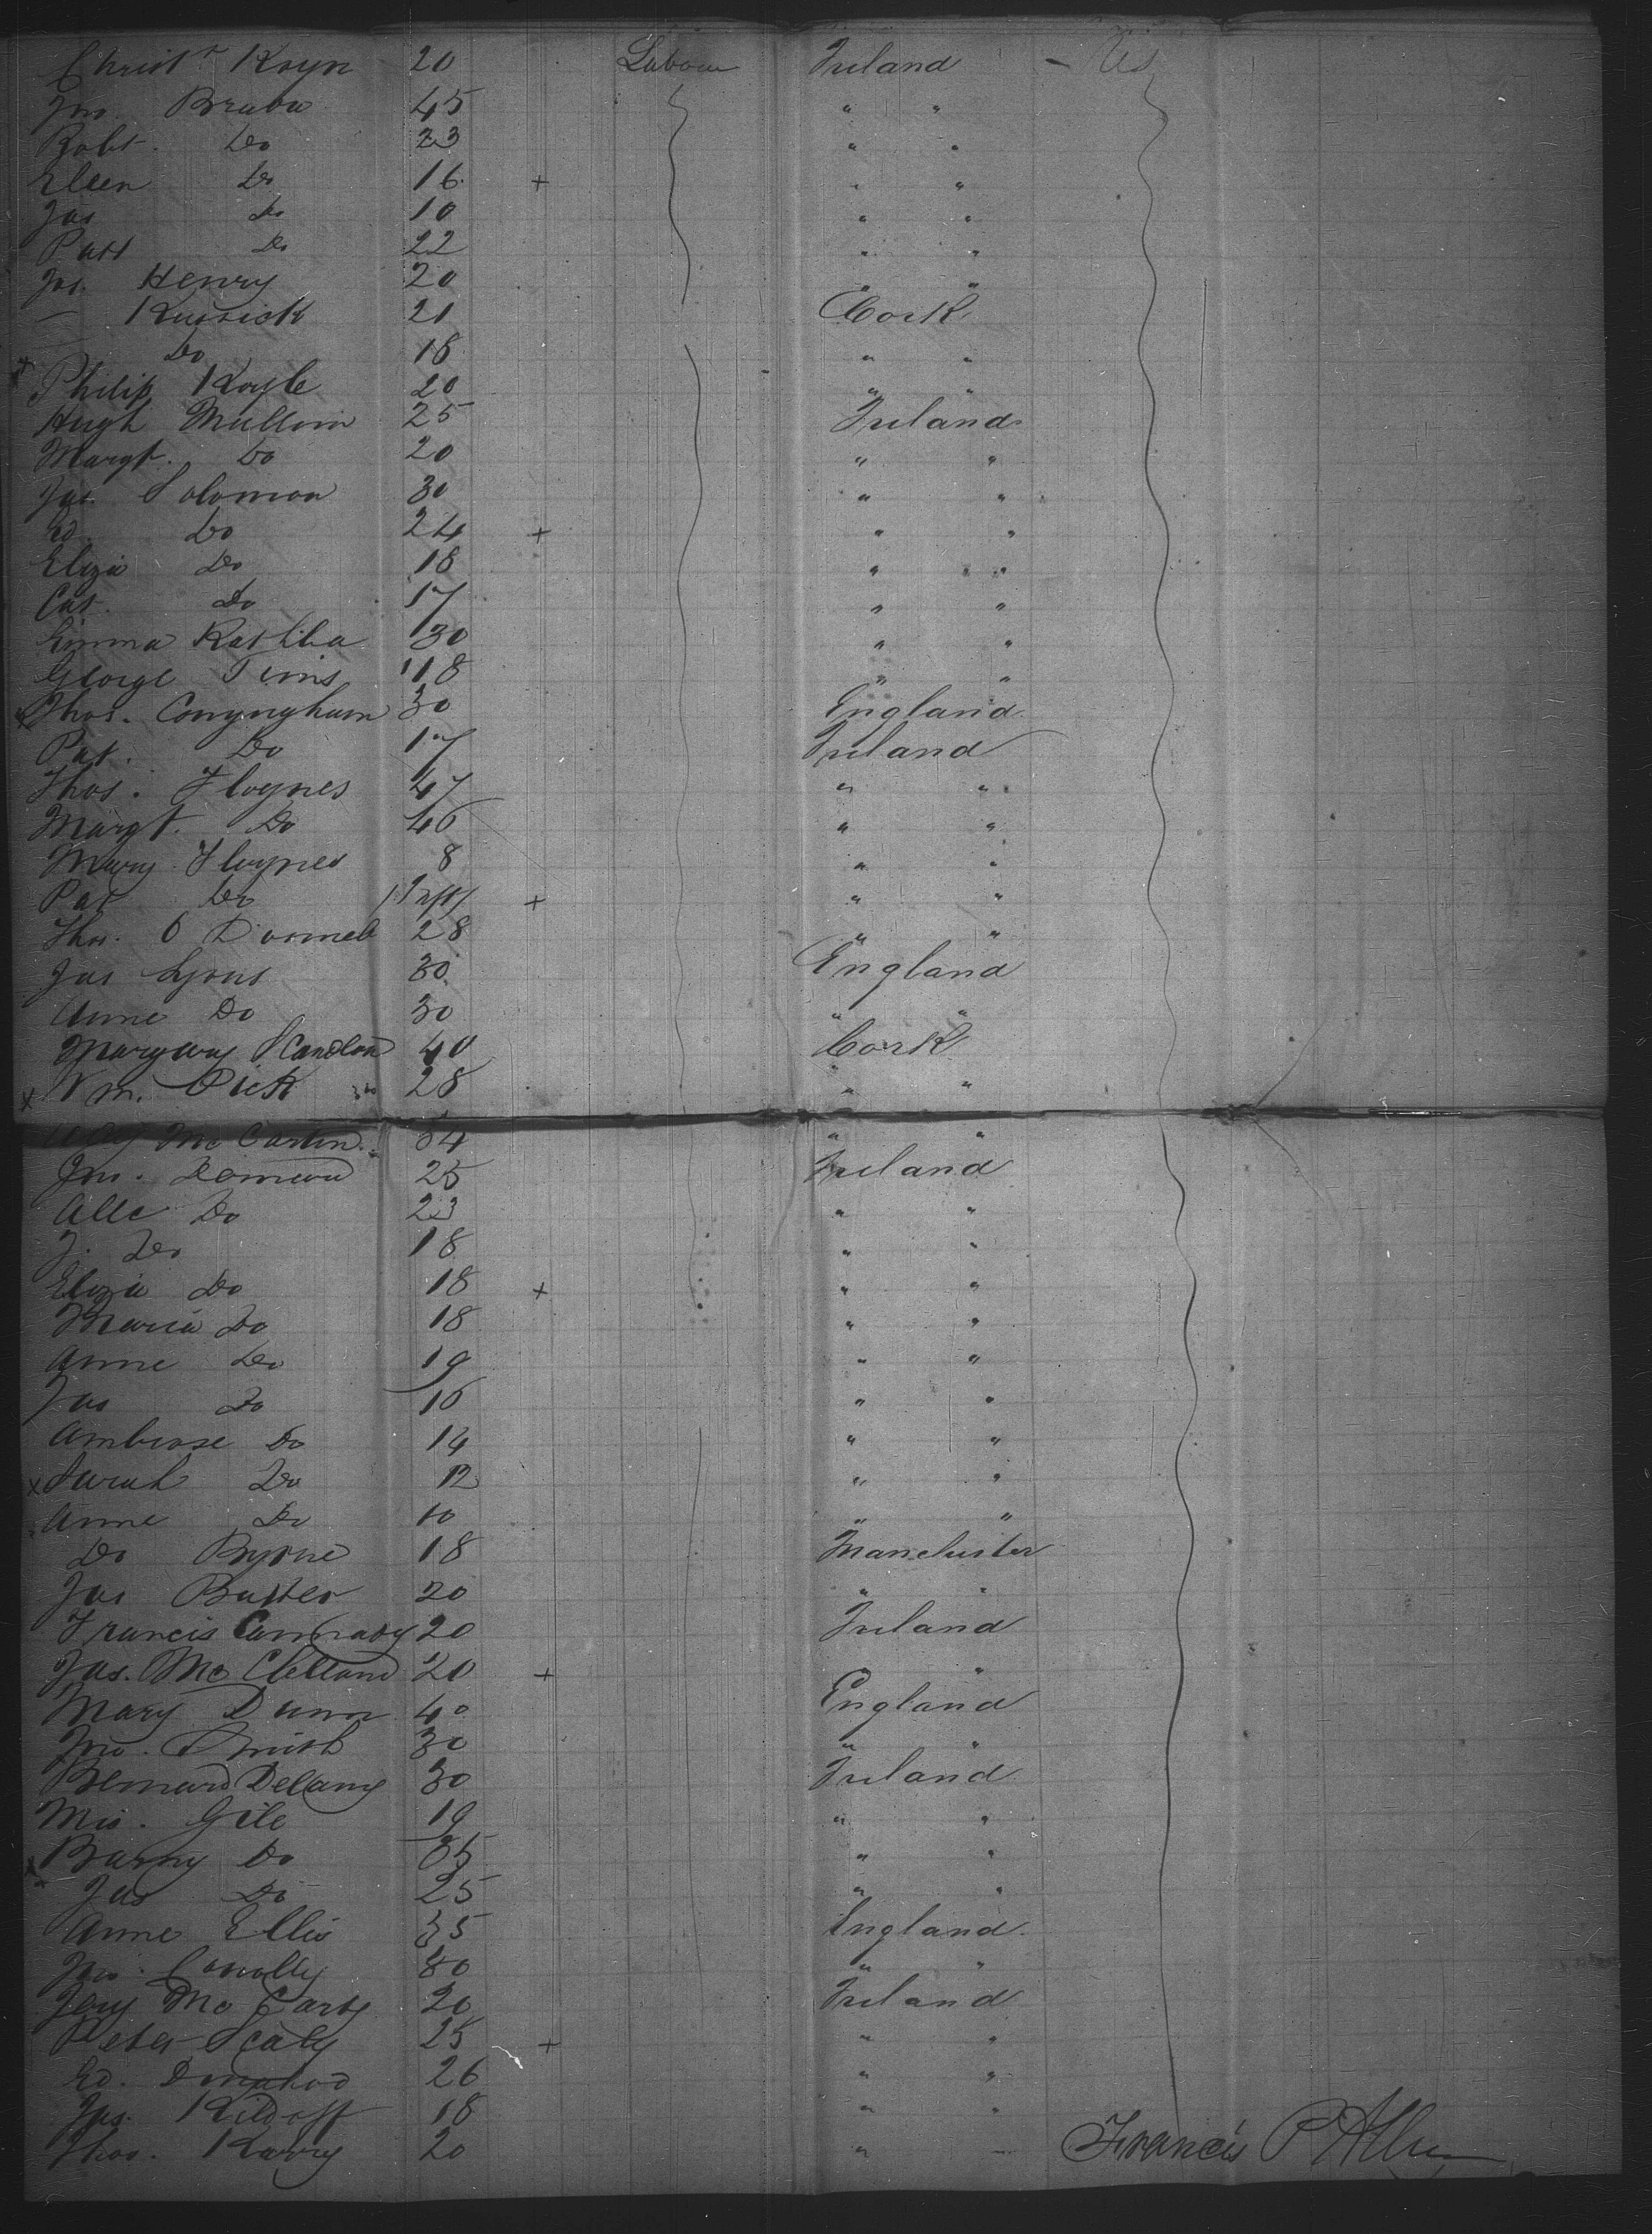 Christr Koyn 20 Labour Ireland - US
Jno. Braba 45 " "
Robt. Do 23 " "
Ellen Do 16 + " "
Jas Do 10 " "
Patt Do 22 " "
Jas. Henry 20 " "
— Kusick 21 Cork
Do 18 " "
x Philip Koyle 20 " "
Hugh Mullom 25 Ireland
Margt. Do 20 " "
Jas. Solomon 30 " "
Ed. Do 24 + " "
Eliza Do 18 " "
Cat. Do 17 " "
Emma 30 " "
George Tims 18 " "
x Thos. Conyngham 30 England
Pat. Do 17 Ireland
Thos. Floynes 47 " "
Margt. Do 46 " "
Mary Floynes 8 " "
Pat Do Inft + " "
Thos. O Donnel 28 " "
Jas Lyons 30 England
Anne Do 30 " "
Scandlon 40 Cork
x Wm. Pick 28 " "
Mc Cartin 54 " "
Jno. 25 Ireland
Alle Do 23 " "
J. Do 18 " "
Eliza Do 18 + " "
Maria Do 18 " "
Anne Do 19 " "
Jas Do 16 " "
Ambrose Do 14 " "
x Sarah Do 12 " "
Anne Do 10 " "
Do Byrne 18 Manchester
Jas Butler 20 " "
Francis 20 Ireland
Jas. Mc Clelland 20 + " "
Mary Dunn 40 England
Jno. Smith 30 " "
Bernard Delany 30 Ireland
Mis. Gile 19 " "
x Barny Do 35 " "
Jas Do 25 " "
Anne Ellis 35 England
Jno. Conolly 30 " "
Jery Mc Carty 20 Ireland
Peter Scaly 25 + " "
Ed. Donahod 26 " "
Jas. Kildoff 18 " "
Thos. Karry 20 " " Francis P Allen